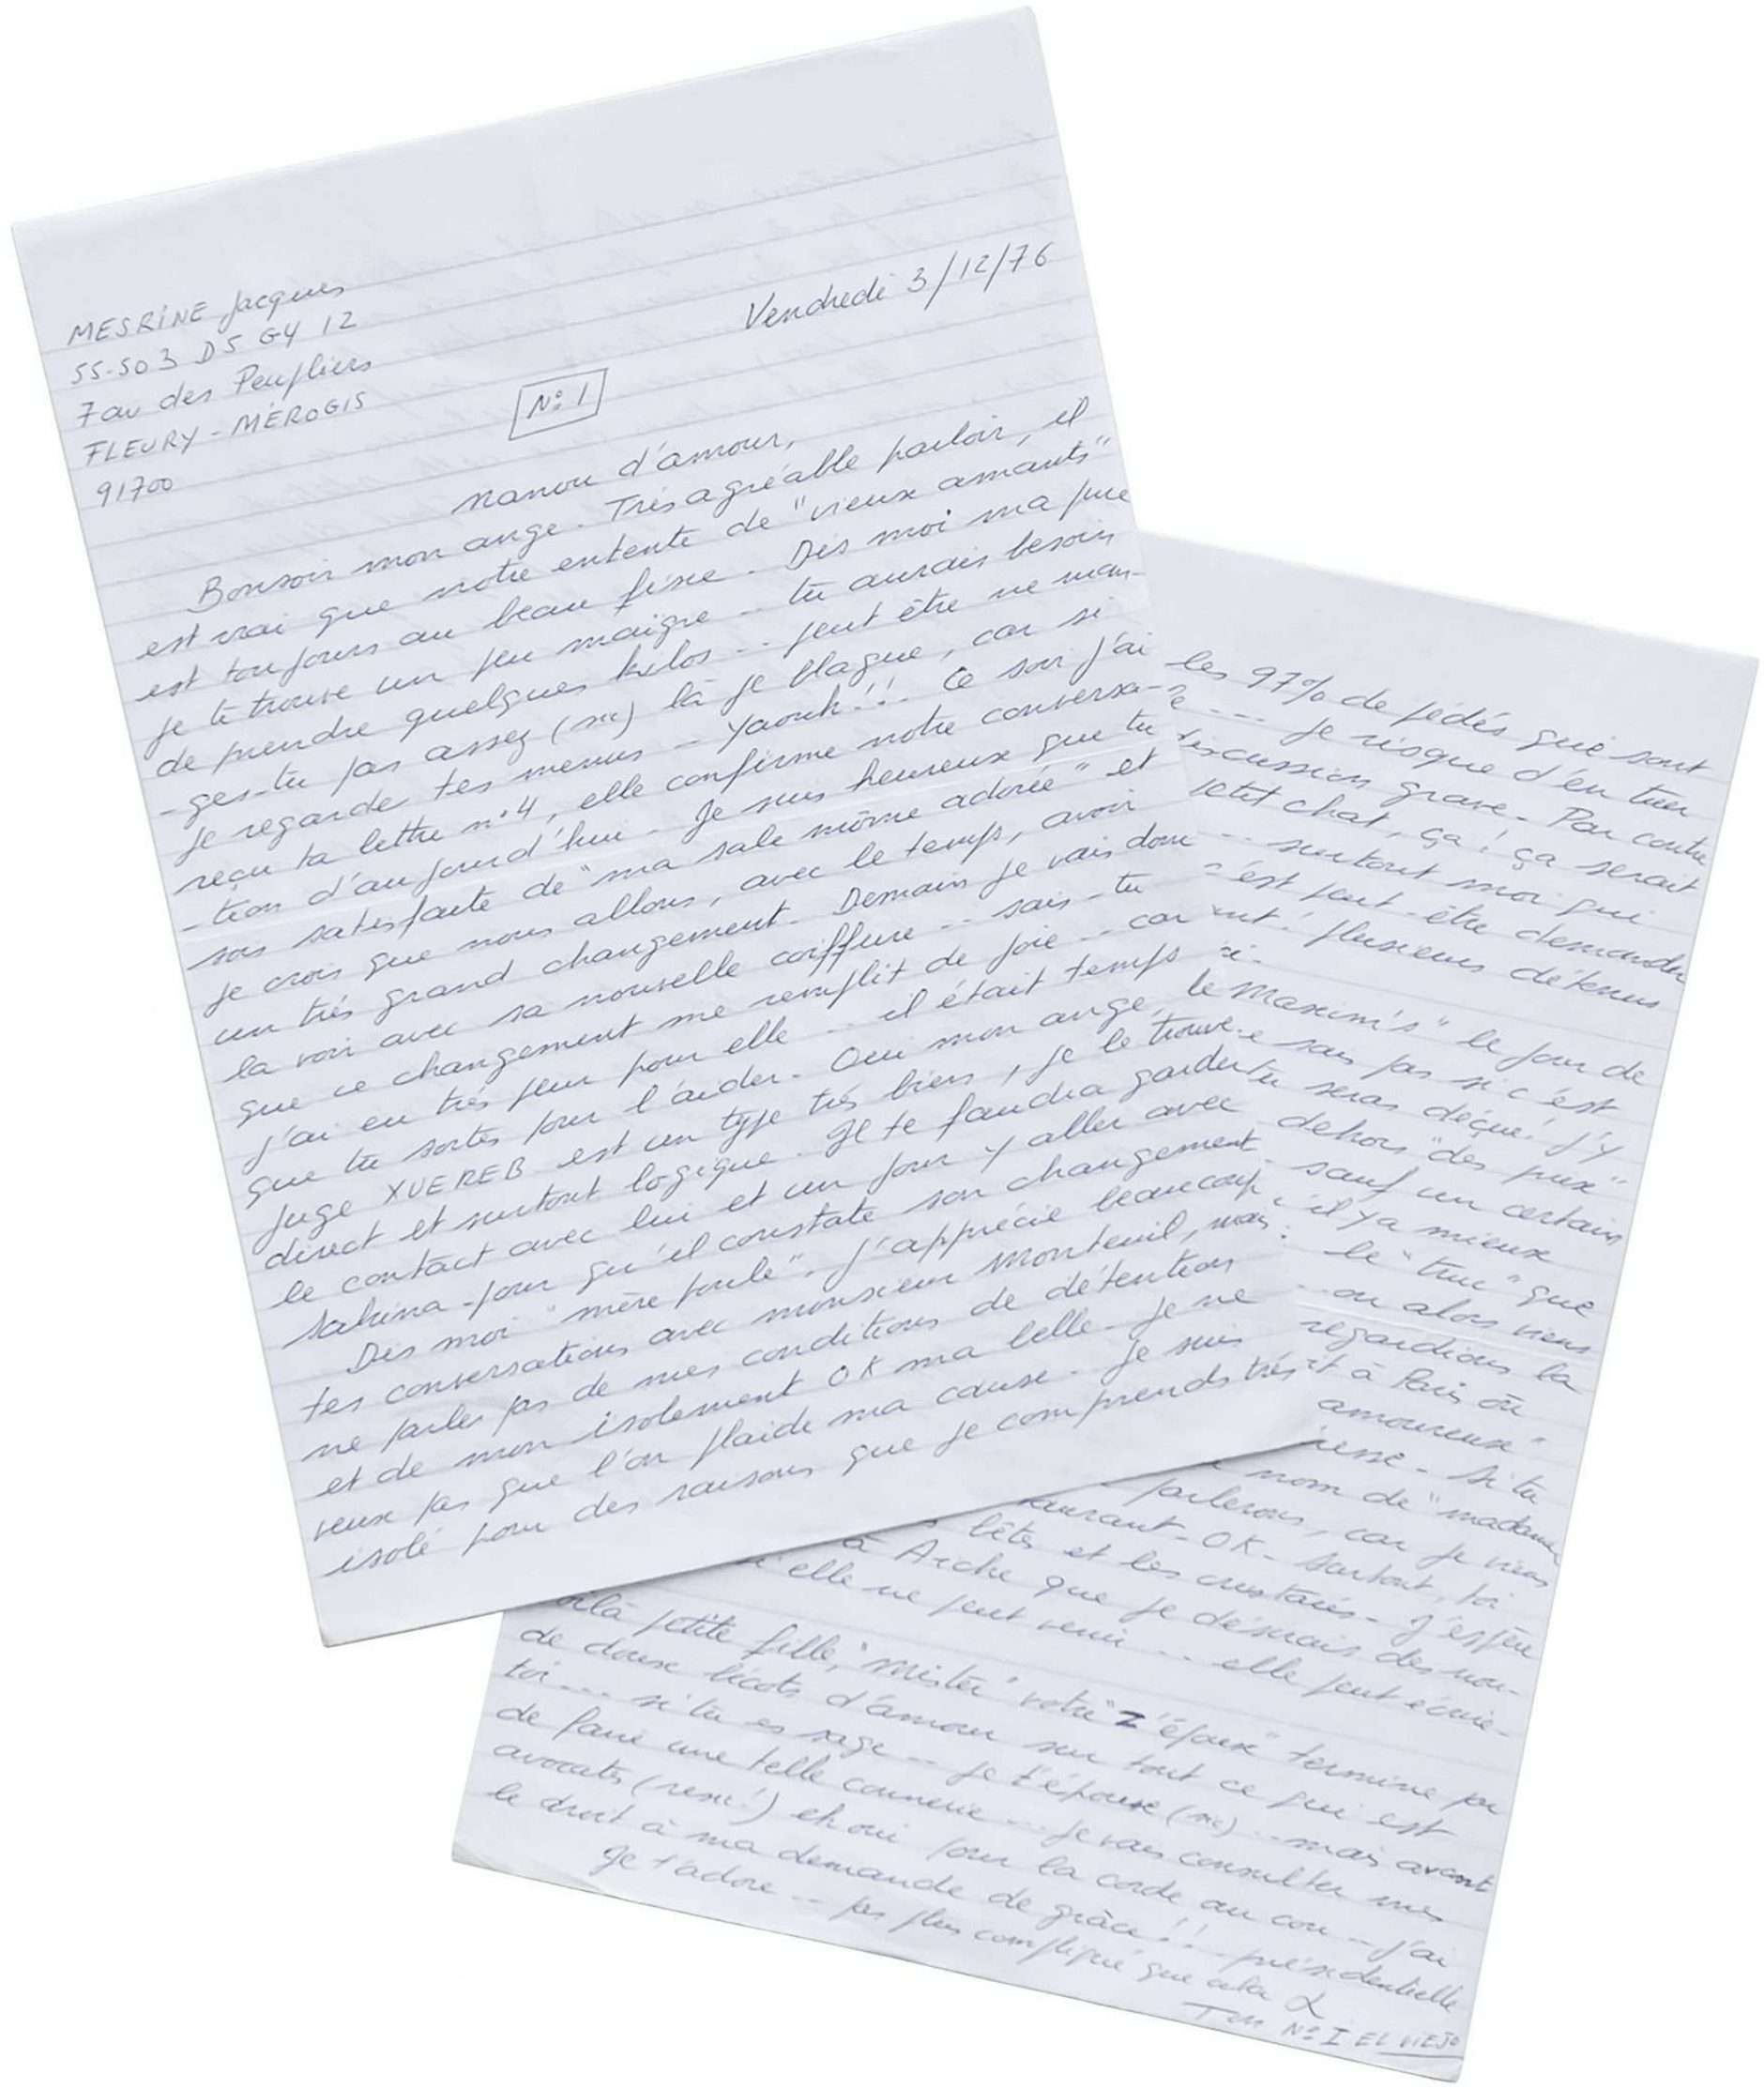 MESRINE Jacques
55-503 D5 G4 12
7 av des Peupliers
FLEURY-MÉROGIS
91700
Vendredi 3/12/76
N° 1
Nanou d'amour,
Bonsoir mon ange. Très agréable parloir, il
est vrai que notre entente de "vieux amants"
est toujours au beau fixe. Dis moi ma puce
je te trouve un peu maigre - tu aurais besoin
de prendre quelques kilos .. peut être ne man-
-ges-tu pas assez (sic) là je blague, car si
je regarde tes menus - Yaouh!!! Ce soir j'ai
reçu ta lettre n°4, elle confirme notre conversa-
-tion d'aujourd'hui - Je suis heureux que tu
sois satisfaite de "ma sale môme adorée" et
je crois que nous allons, avec le temps, avoir
un très grand changement. Demain je vais donc
la voir avec sa nouvelle coiffure ... sais-tu
que ce changement me remplit de joie .. car
j'ai eu très peur pour elle ... il était temps
que tu sortes pour l'aider. Oui mon ange, le
juge XUEREB est un type très bien, je le trouve
direct et surtout logique. Il te faudra garder
le contact avec lui et un jour y aller avec
Sabrina pour qu'il constate son changement.
Dis moi "mère poule", j'apprécie beaucoup
tes conversations avec monsieur Monteuil, mais
ne parles pas de mes conditions de détention
et de mon isolement OK ma belle - Je ne
veux pas que l'on plaide ma cause - Je suis
isolé pour des raisons que je comprends très
les 97% de pédés qui sont
--- je risque d'en tuer
discussion grave - Par contre
petit chat, ça! ça serait
... surtout moi qui
c'est peut-être demander
! plusieurs détenus
Maxim's" le jour de
sais pas si c'est
tu seras déçue! j'y
dehors "des prix"
sauf un certain
il y a mieux
le "truc" que
.. ou alors viens
regardions la
à Paris où
amoureux"
- Si tu
nom de "madame
parlerons, car je viens
- OK - Surtout, toi
bêtes et les crustacés - J'espère
à Arche que je désirais des nou-
elle ne peut venir ... elle peut écrire -
petite fille, "mister" votre "Z'époux" termine par
de doux bécots d'amour sur tout ce qui est
toi ... si tu es sage -- je t'épouse (sic) .. mais avant
de faire une telle connerie ... je vais consulter mes
avocats (resic!) eh oui pour la corde au cou - j'ai
le droit à ma demande de grâce!! - présidentielle
Je t'adore -- pas plus compliqué que cela
Ton N° I EL VIEJO